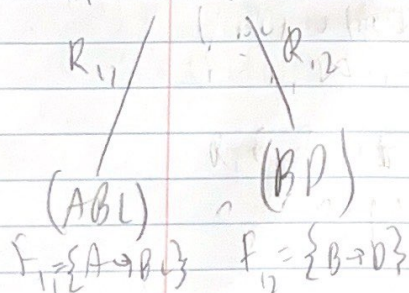 R₁₁ R₁₂
(ABC) (BD)
F₁₁={A→BC} F₁₂={B→D}